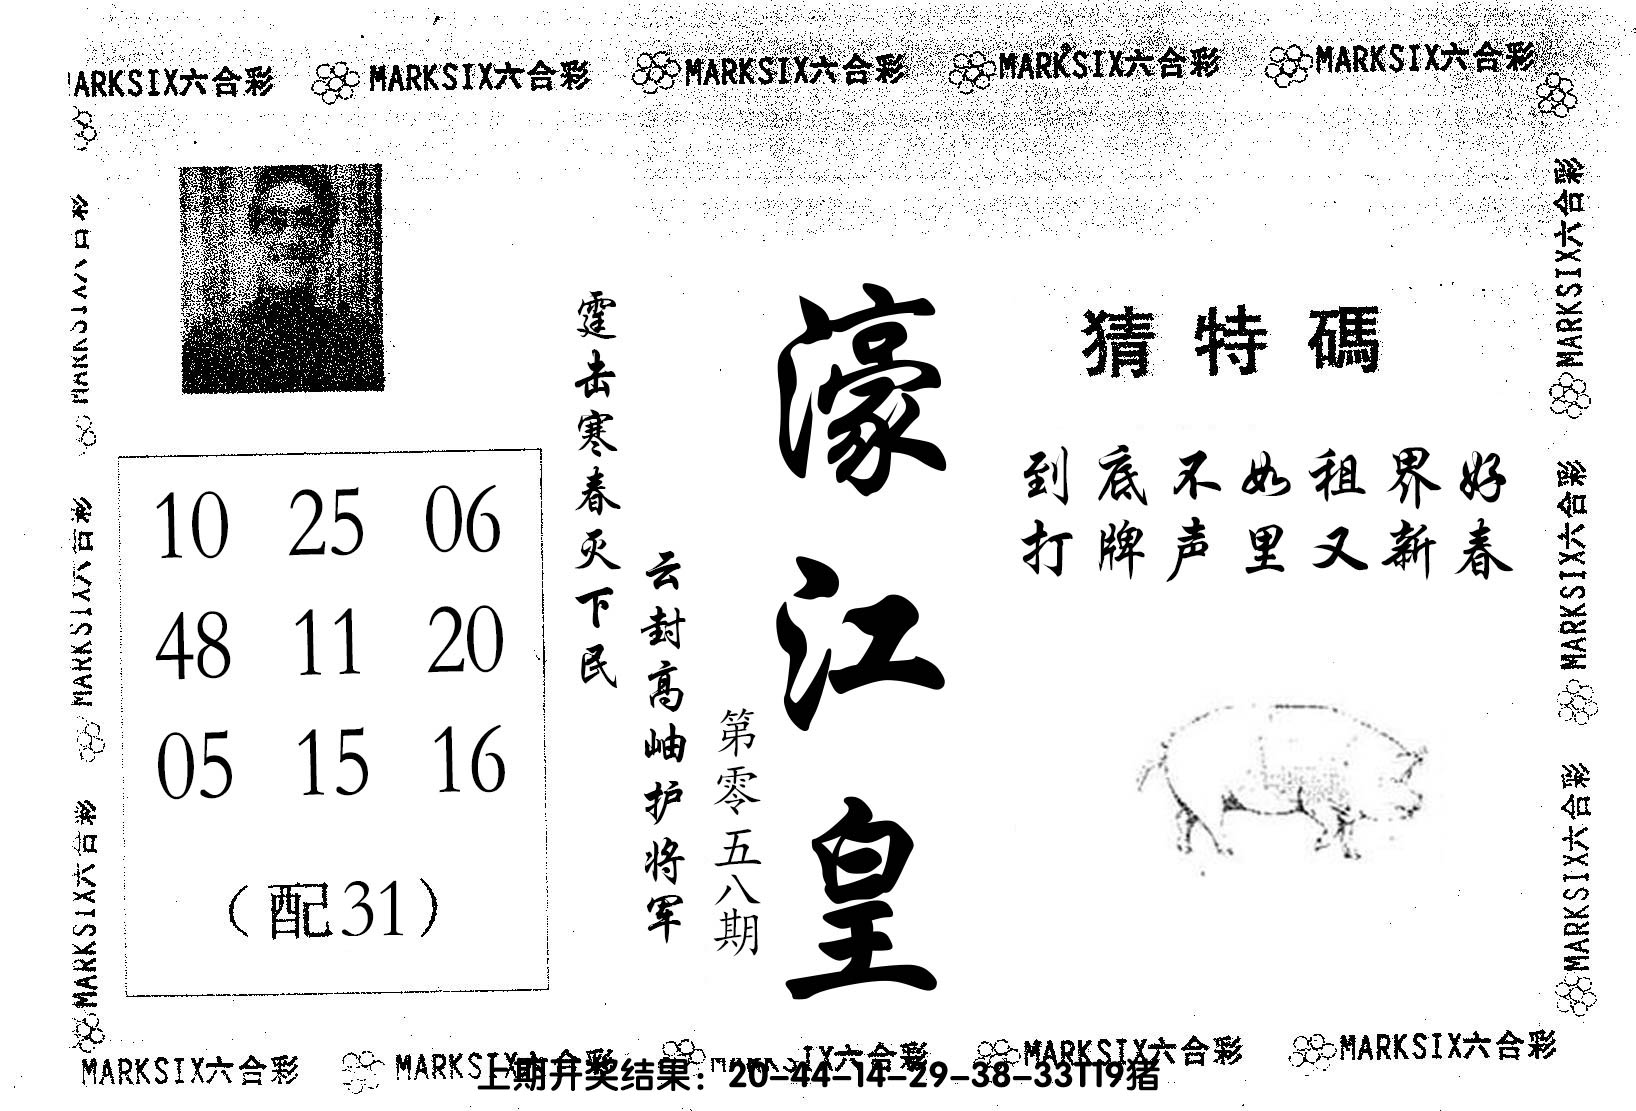 MARKSIX六合彩 MARKSIX六合彩 MARKSIX六合彩 MARKSIX六合彩 MARKSIX六合彩
MARKSIX六合彩
MARKSIX六合彩
MARKSIX六合彩
10 25 06
48 11 20
05 15 16
（配31）
霆击寒春灭下民
云封高岫护将军
第零五八期
濠江皇
猜特碼
到底不如租界好
打牌声里又新春
MARKSIX六合彩
MARKSIX六合彩
MARKSIX六合彩
MARKSIX六合彩 MARKSIX六合彩 IX六合彩 MARKSIX六合彩 MARKSIX六合彩
上期开奖结果：20-44-14-29-38-33T19猪